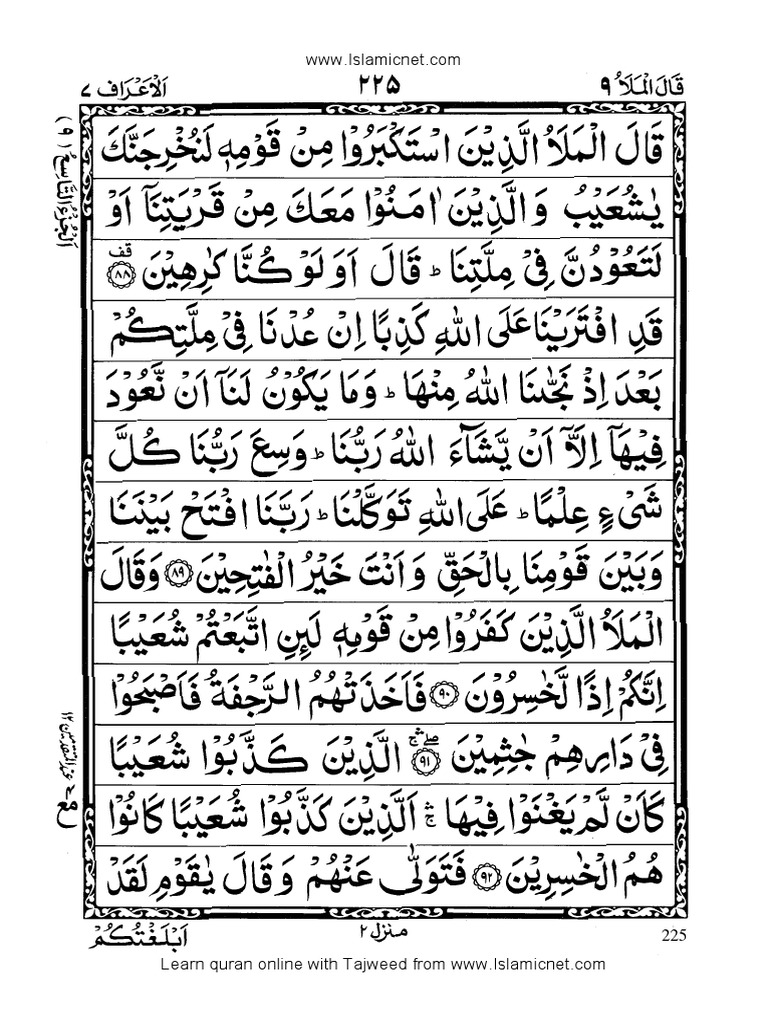 www.Islamicnet.com
قَالَ الْمَلَاُ ۹ ۲۲۵ اَلْاَعْرَاف ۷
قَالَ الْمَلَاُ الَّذِيْنَ اسْتَكْبَرُوْا مِنْ قَوْمِهٖ لَنُخْرِجَنَّكَ
يٰشُعَيْبُ وَالَّذِيْنَ اٰمَنُوْا مَعَكَ مِنْ قَرْيَتِنَاۤ اَوْ
لَتَعُوْدُنَّ فِيْ مِلَّتِنَا ؕ قَالَ اَوَلَوْ كُنَّا كٰرِهِيْنَ ۟ قف ۸۸
قَدِ افْتَرَيْنَا عَلَى اللّٰهِ كَذِبًا اِنْ عُدْنَا فِيْ مِلَّتِكُمْ
بَعْدَ اِذْ نَجّٰىنَا اللّٰهُ مِنْهَا ؕ وَمَا يَكُوْنُ لَنَاۤ اَنْ نَّعُوْدَ
فِيْهَاۤ اِلَّاۤ اَنْ يَّشَآءَ اللّٰهُ رَبُّنَا ؕ وَسِعَ رَبُّنَا كُلَّ
شَيْءٍ عِلْمًا ؕ عَلَى اللّٰهِ تَوَكَّلْنَا ؕ رَبَّنَا افْتَحْ بَيْنَنَا
وَبَيْنَ قَوْمِنَا بِالْحَقِّ وَاَنْتَ خَيْرُ الْفٰتِحِيْنَ ۸۹ وَقَالَ
الْمَلَاُ الَّذِيْنَ كَفَرُوْا مِنْ قَوْمِهٖ لَئِنِ اتَّبَعْتُمْ شُعَيْبًا
اِنَّكُمْ اِذًا لَّخٰسِرُوْنَ ۹۰ فَاَخَذَتْهُمُ الرَّجْفَةُ فَاَصْبَحُوْا
فِيْ دَارِهِمْ جٰثِمِيْنَ ۹۱ الَّذِيْنَ كَذَّبُوْا شُعَيْبًا
كَاَنْ لَّمْ يَغْنَوْا فِيْهَا ۛۚ اَلَّذِيْنَ كَذَّبُوْا شُعَيْبًا كَانُوْا
هُمُ الْخٰسِرِيْنَ ۹۲ فَتَوَلّٰى عَنْهُمْ وَقَالَ يٰقَوْمِ لَقَدْ
اَلْجُزْءُ التَّاسِعُ (۹)
منزل ۲
اَبْلَغْتُكُمْ
225
Learn quran online with Tajweed from www.Islamicnet.com